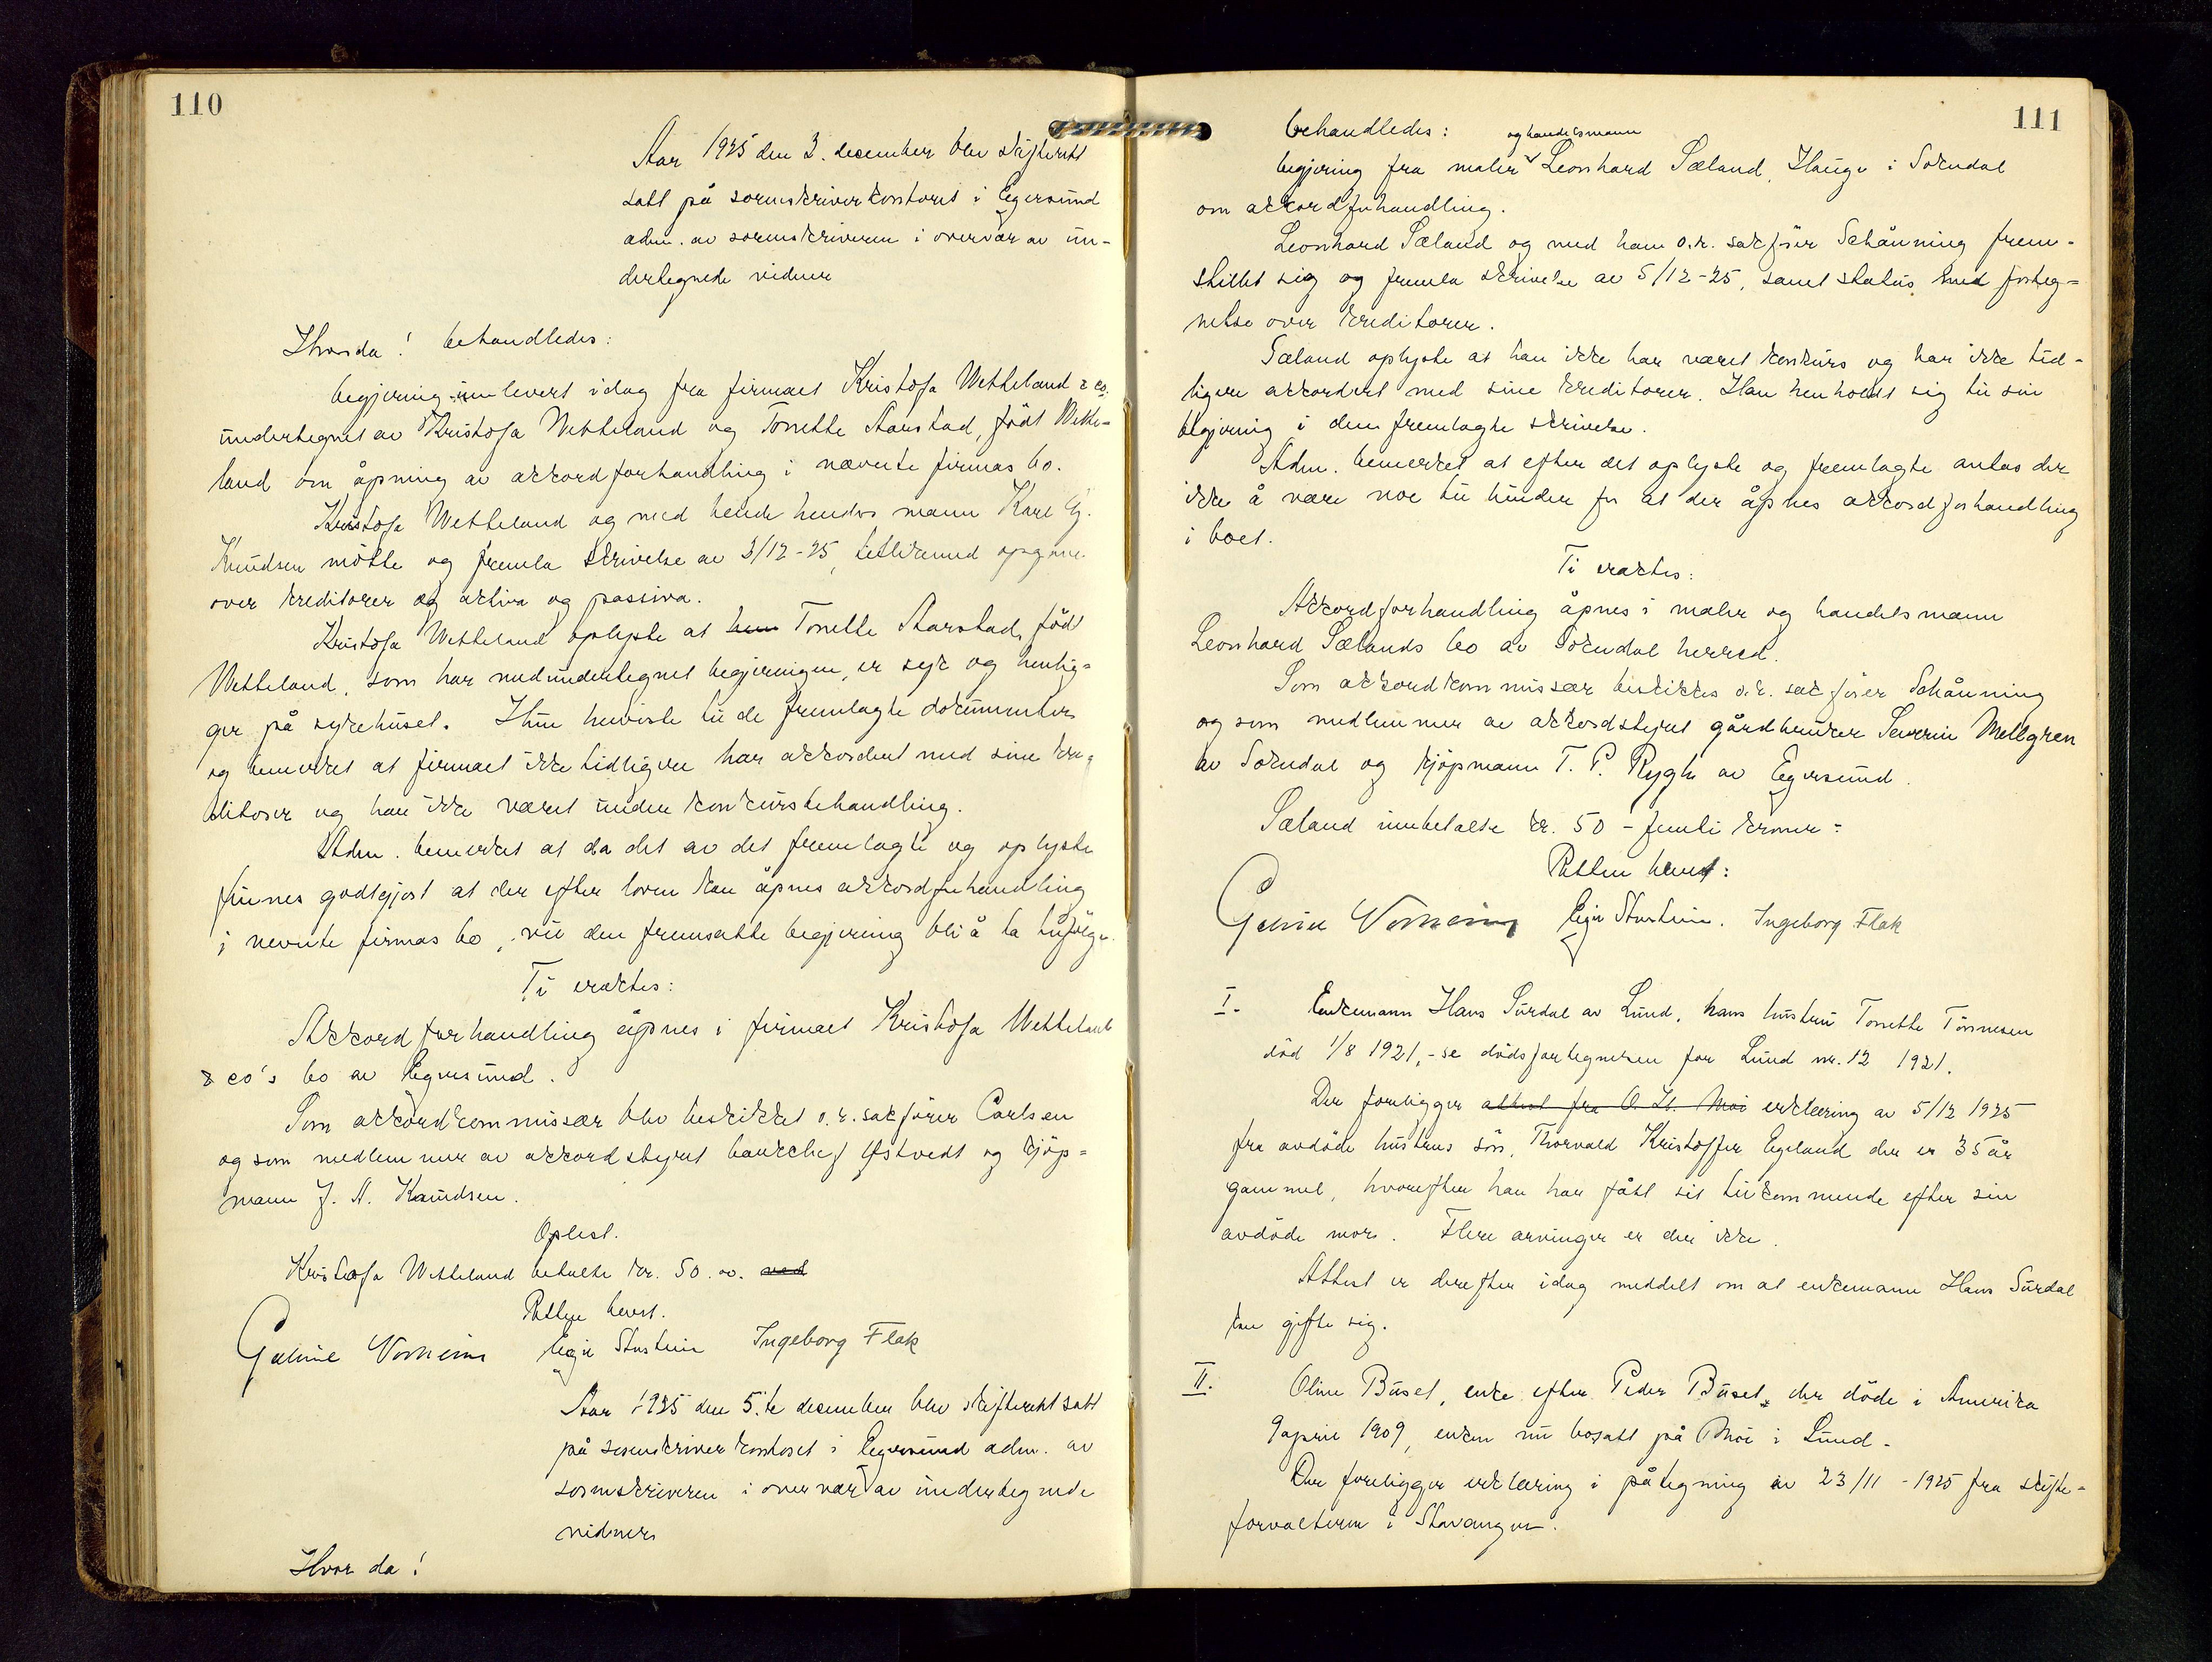 110
Aar 1925 den 3. december blev skifterett
satt på sorenskriverkontoret i Egersund
adm. av sorenskriveren i overvær av un-
dertegnede vidner
Hvor da! behandledes:
begjering innlevert idag fra firmaet Kristofa Wetteland & co.
undertegnet av Kristofa Wetteland og Tonette Aarstad, född Wette-
land om åpning av akkordforhandling i nævnte firmas bo.
Kristofa Wetteland og med hende hendes mann Karl Eg.
Knudsen mötte og fremla skrivelse av 3/12-25, tillikemed opgave
over kreditorer og aktiva og passiva.
Kristofa Wetteland oplyste at hun Tonette Aarstad, född
Wetteland, som har medundertegnet begjeringen, er syk og henlig-
ger på sykehuset. Hun henviste til de fremlagte dokumenter
og bemerket at firmaet ikke tidligere har akkordert med sine kre-
ditorer og har ikke været under konkursbehandling.
Adm. bemerket at da det av det fremlagte og oplyste
finnes godtgjort at der efter loven kan åpnes akkordforhandling
i nevnte firmas bo, vil den fremsatte begjering bli å ta tilfölge.
Ti eraktes:
Akkordforhandling åpnes i firmaet Kristofa Wetteland
& co's bo av Egersund.
Som akkordkommissær blev beskikket o.r. sakförer Carlsen
og som medlemmer av akkordstyret bankchef Østvedt og kjöp-
mann J. A. Knudsen.
Oplest.
Kristofa Wetteland betalte kr. 50.00. ved
Retten hevet.
Gabriel Vormeim Egil Stenstein Ingeborg Flak
Aar 1925 den 5.te december blev skifterett satt
på sorenskriverkontoret i Egersund adm. av
sorenskriveren i overvær av undertegnede
vidner
Hvor da!
111
behandledes:
og handelsmann
begjering fra maler Leonhard Sæland, Hauge i Sokndal
om akkordforhandling.
Leonhard Sæland og med ham o.r. sakförer Schånning frem-
stillet sig og fremla skrivelse av 5/12-25, samt status med forteg-
nelse over kreditorer.
Sæland oplyste at han ikke har været konkurs og har ikke tid-
ligere akkordert med sine kreditorer. Han henholdt sig til sin
begjering i den fremlagte skrivelse.
Adm. bemerket at efter det oplyste og fremlagte antas der
ikke å være noe til hinder for at der åpnes akkordforhandling
i boet.
Ti eraktes:
Akkordforhandling åpnes i maler og handelsmann
Leonhard Sælands bo av Sokndal herred.
Som akkordkommissær beskikkes o.r. sakförer Schånning
og som medlemmer av akkordstyret gårdbruker Severin Mellgren
av Sokndal og kjöpmann T. P. Rygh av Egersund.
Sæland innbetalte kr. 50 - femti kroner -
Retten hevet:
Gabriel Vormeim Egil Stenstein. Ingeborg Flak
I. Enkemann Hans Surdal av Lund, hans hustru Tonette Tönnesen
död 1/8 1921, - se dödsfortegnelsen for Lund nr. 12 1921.
Der foreligger attest fra O. Lt. Moi erklæring av 5/12 1925
fra avdöde hustrus sön, Thorvald Kristoffer Egeland der er 35 år
gammel, hvorefter han har fått sit tilkommende efter sin
avdöde mor. Flere arvinger er der ikke.
Attest er derefter idag meddelt om at enkemann Hans Surdal
kan gifte sig.
II. Oline Buset, enke efter Peder Buset, der döde i Amerika
9 april 1909, enken nu bosatt på Moi i Lund.
Der foreligger erklæring i påtegning av 23/11 - 1925 fra skifte-
forvalteren i Stavanger.